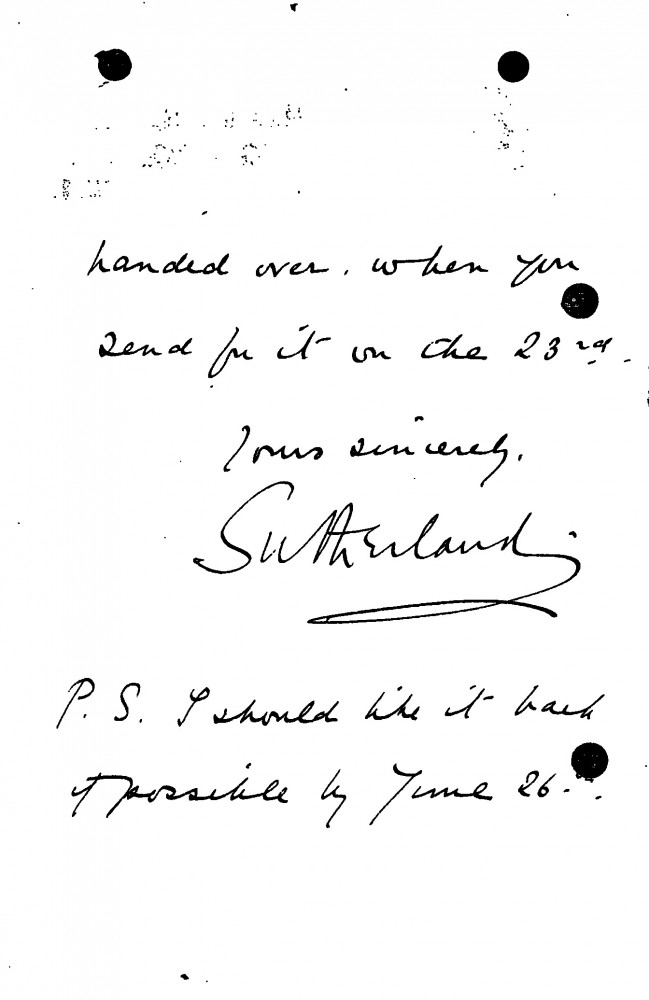 handed over. when you
send for it on the 23rd.
Yours sincerely.
Sutherland
P. S. I should like it back
if possible by June 26th.